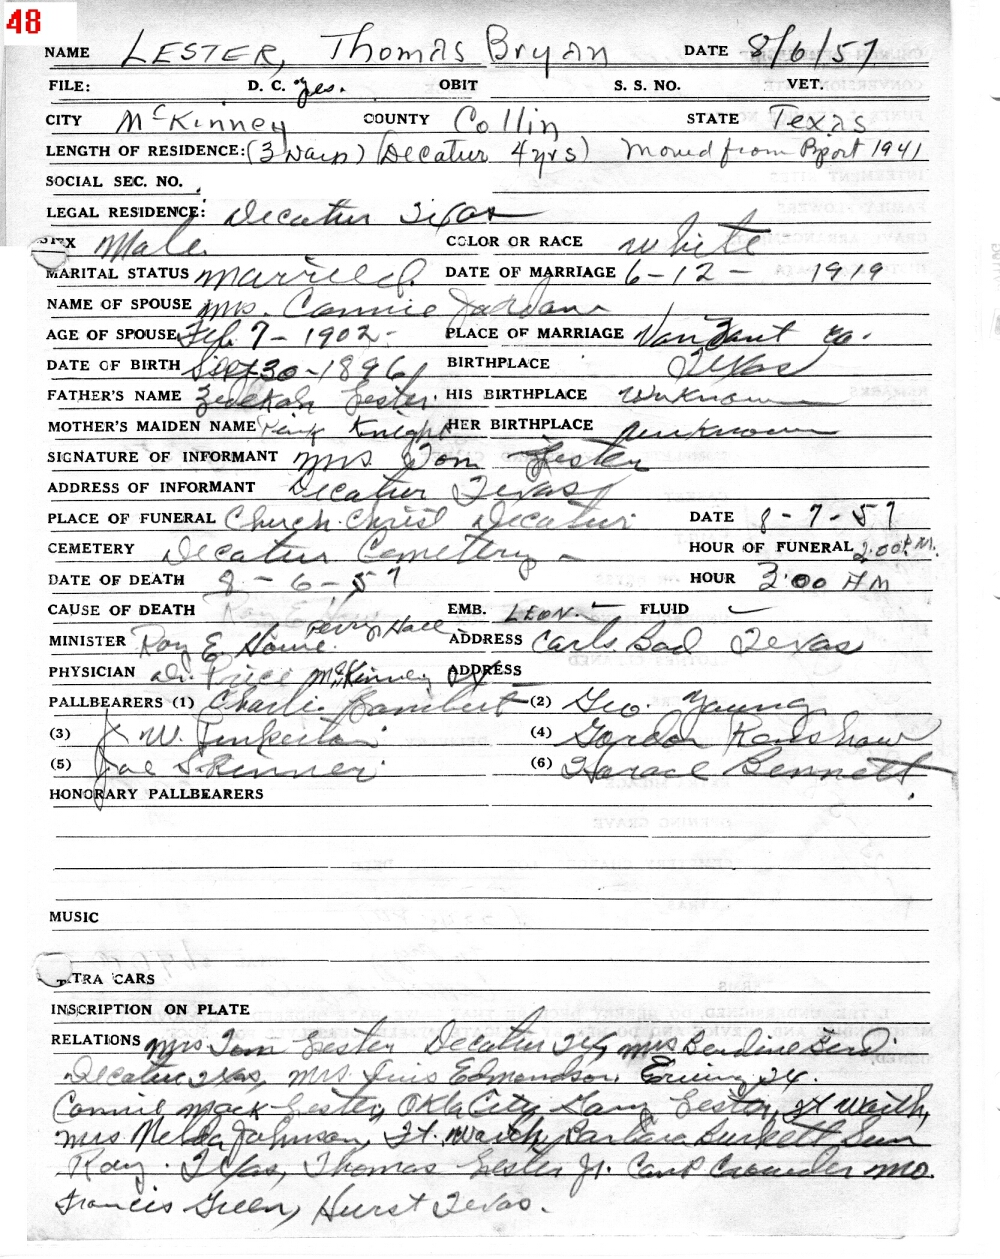 48
NAME LESTER, Thomas Bryan DATE 8/6/57
FILE: D. C. yes. OBIT S. S. NO. VET.
CITY McKinney COUNTY Collin STATE Texas
LENGTH OF RESIDENCE: (3 Days) (Decatur 4yrs) Moved from Bport 1941
SOCIAL SEC. NO.
LEGAL RESIDENCE: Decatur Texas
SEX Male COLOR OR RACE White
MARITAL STATUS Married. DATE OF MARRIAGE 6-12-1919
NAME OF SPOUSE Mrs. Connie Jordan
AGE OF SPOUSE Feb. 7-1902- PLACE OF MARRIAGE Van Zant Co.
DATE OF BIRTH Sept 30-1896 BIRTHPLACE Texas
FATHER'S NAME Lester. HIS BIRTHPLACE Unknown
MOTHER'S MAIDEN NAME Knight HER BIRTHPLACE Unknown
SIGNATURE OF INFORMANT Mrs. Tom Lester
ADDRESS OF INFORMANT Decatur Texas
PLACE OF FUNERAL Church. Christ Decatur DATE 8-7-57
CEMETERY Decatur Cemetery HOUR OF FUNERAL 2:00 P.M.
DATE OF DEATH 8-6-57 HOUR 3:00 AM
CAUSE OF DEATH EMB. LEON. FLUID
MINISTER Roy E. Perry Hall ADDRESS Carls Bad Texas
PHYSICIAN Dr. Price McKinney ADDRESS
PALLBEARERS (1) Charlie Lambert (2) Geo. Young
(3) W. Pinkerton (4) Gordon Renshaw
(5) Joe Skinner (6) Horace Bennett.
HONORARY PALLBEARERS
MUSIC
EXTRA CARS
INSCRIPTION ON PLATE
RELATIONS Mrs Tom Lester Decatur Tex, Mrs Berdine
Decatur Texas, Mrs. Edmondson, Tx.
Connie Mack Lester, Okla City, Gary Lester, Ft Worth,
Mrs Nelda Johnson, Ft. Worth, Barbara Burkett Sun
Ray. Texas, Thomas Lester Jr. Camp Crowder Mo.
Francis Green, Hurst Texas.